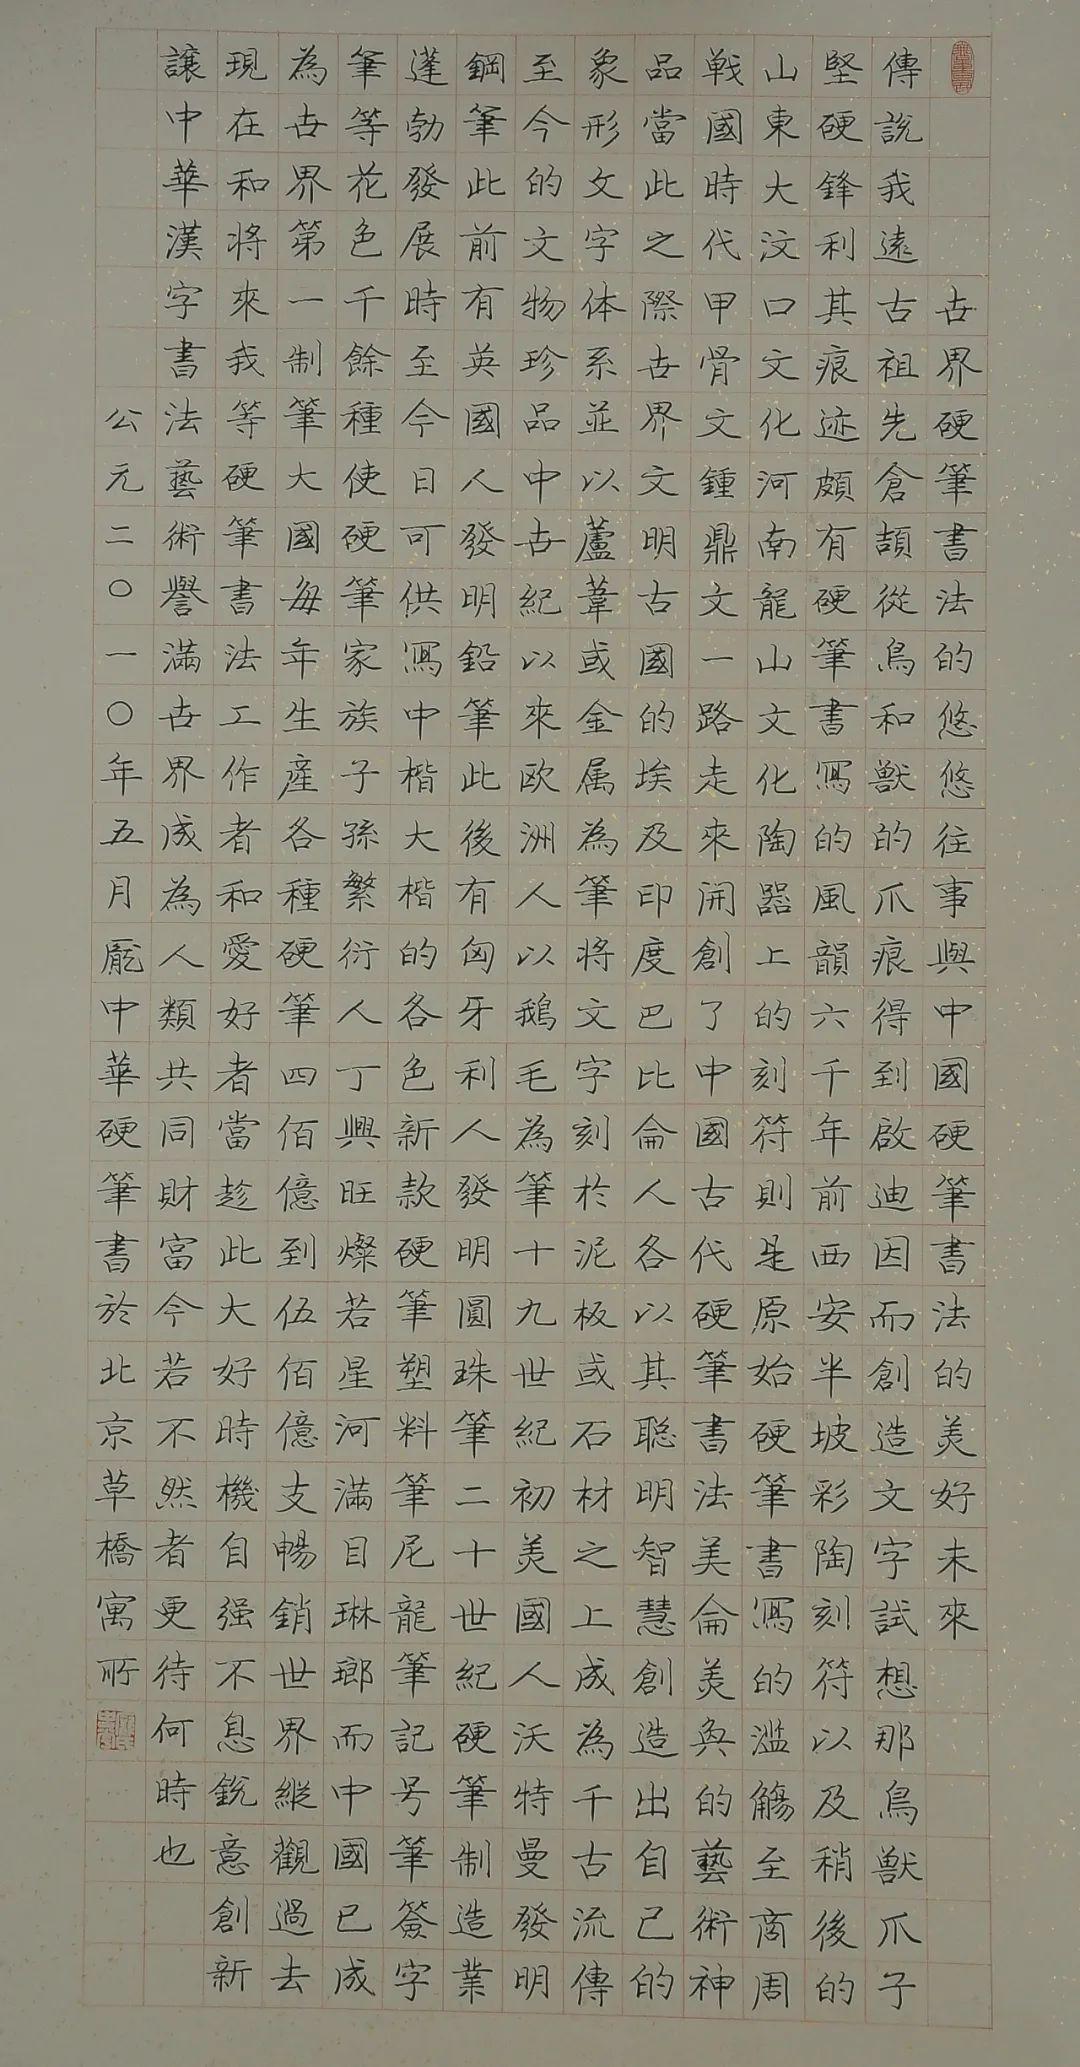 世界硬筆書法的悠悠往事與中國硬筆書法的美好未來
傳説我遠古祖先倉頡從鳥和獸的爪痕得到啟迪因而創造文字試想那鳥獸爪子
堅硬鋒利其痕迹頗有硬筆書寫的風韻六千年前西安半坡彩陶刻符以及稍後的
山東大汶口文化河南龍山文化陶器上的刻符則是原始硬筆書寫的濫觴至商周
戰國時代甲骨文鍾鼎文一路走來開創了中國古代硬筆書法美侖美奐的藝術神
品當此之際世界文明古國的埃及印度巴比侖人各以其聪明智慧創造出自己的
象形文字体系並以蘆葦或金属為筆將文字刻於泥板或石材之上成為千古流傳
至今的文物珍品中古紀以來欧洲人以鵝毛為筆十九世紀初美國人沃特曼發明
鋼筆此前有英國人發明鉛筆此後有匈牙利人發明圓珠筆二十世紀硬筆制造業
蓬勃發展時至今日可供寫中楷大楷的各色新款硬筆塑料筆尾龍筆記号筆簽字
筆等花色千餘種使硬筆家族子孫繁衍人丁興旺燦若星河滿目琳瑯而中國已成
為世界第一制筆大國每年生産各種硬筆四佰億到伍佰億支暢銷世界縱觀過去
現在和將來我等硬筆書法工作者和愛好者當趁此大好時機自强不息銳意創新
讓中華漢字書法藝術譽滿世界成為人類共同財富今若不然者更待何時也
公元二〇一〇年五月龐中華硬筆書於北京草橋寓所